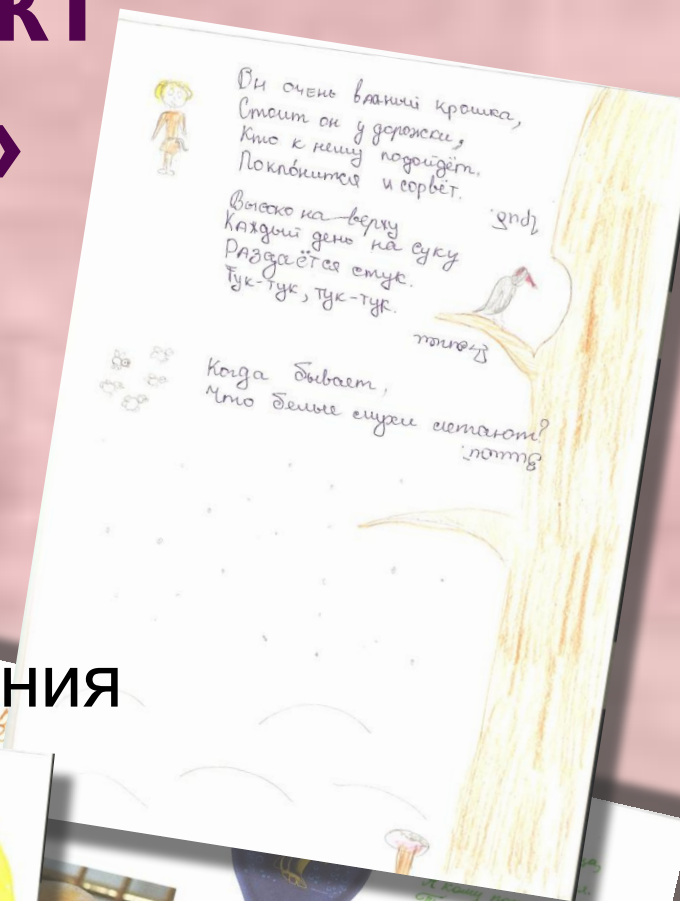 кт
»
Он очень важный крошка,
Стоит он у дорожки,
Кто к нему подойдёт.
Поклонится и сорвёт.
Гриб.
Высоко на верху
Каждый день на суку
Раздаётся стук.
Тук-тук, тук-тук.
Дятел
Когда бывает,
Что белые мухи летают?
Зимой.
ния